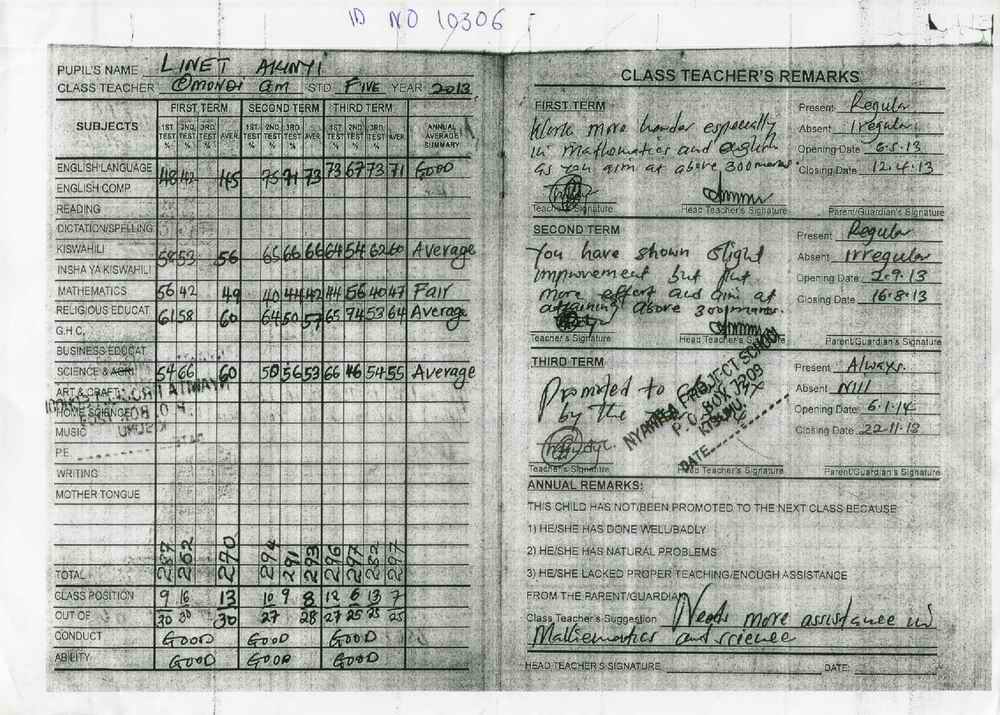 ID NO 10306
PUPIL'S NAME LINET AKINYI
CLASS TEACHER Omondi GM STD FIVE YEAR 2013
SUBJECTS FIRST TERM SECOND TERM THIRD TERM ANNUAL AVERAGE SUMMARY
1ST TEST % 2ND TEST % 3RD TEST % AVER. 1ST TEST % 2ND TEST % 3RD TEST % AVER. 1ST TEST % 2ND TEST % 3RD TEST % AVER.
ENGLISH LANGUAGE 48 42 45 75 71 73 73 67 73 71 GOOD
ENGLISH COMP
READING
DICTATION/SPELLING
KISWAHILI 53 56 65 66 66 64 54 62 60 Average
INSHA YA KISWAHILI
MATHEMATICS 56 42 49 40 44 42 44 56 40 47 Fair
RELIGIOUS EDUCAT 61 58 60 64 50 57 65 74 53 64 Average
G.H.C,
BUSINESS EDUCAT
SCIENCE & AGRI 54 66 60 50 56 53 66 46 54 55 Average
ART & CRAFT
HOME SCIENCE
MUSIC
P.E.
WRITING
MOTHER TONGUE
TOTAL 287 262 270 294 291 293 296 297 282 297
CLASS POSITION 9 16 13 10 9 8 12 6 13 7
OUT OF 30 30 30 27 28 27 25 25 25
CONDUCT GOOD GOOD GOOD
ABILITY GOOD GOOD GOOD
CLASS TEACHER'S REMARKS
FIRST TERM
Work more harder especially
in mathematics and english
as you aim at above 300 marks.
Teacher's Signature Head Teacher's Signature Parent/Guardian's Signature
Present Regular
Absent Irregular
Opening Date 6.5.13
Closing Date 12.4.13
SECOND TERM
You have shown slight
improvement but put
more effort and aim at
attaining above 300 marks.
Teacher's Signature Head Teacher's Signature Parent/Guardian's Signature
Present Regular
Absent Irregular
Opening Date 2.9.13
Closing Date 16.8.13
THIRD TERM
Promoted to
by the
NYAMTHA PROJECT SCHOOL
P.O. BOX 7209
KISUMU
DATE
Teacher's Signature Head Teacher's Signature Parent/Guardian's Signature
Present Always.
Absent Nill
Opening Date 6.1.14
Closing Date 22.11.13
ANNUAL REMARKS:
THIS CHILD HAS NOT/BEEN PROMOTED TO THE NEXT CLASS BECAUSE
1) HE/SHE HAS DONE WELL/BADLY
2) HE/SHE HAS NATURAL PROBLEMS
3) HE/SHE LACKED PROPER TEACHING/ENOUGH ASSISTANCE
FROM THE PARENT/GUARDIAN
Class Teacher's Suggestion Needs more assistance in
Mathematics and science
HEAD TEACHER'S SIGNATURE DATE: